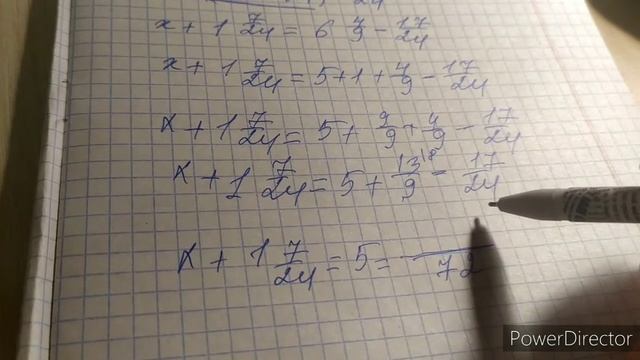 24
x + 1 7/24 = 6 4/9 - 17/24
x + 1 7/24 = 5 + 1 + 4/9 - 17/24
x + 1 7/24 = 5 + 9/9 + 4/9 - 17/24
x + 1 7/24 = 5 + 13\8/9 - 17/24
x + 1 7/24 = 5 = /72
PowerDirector